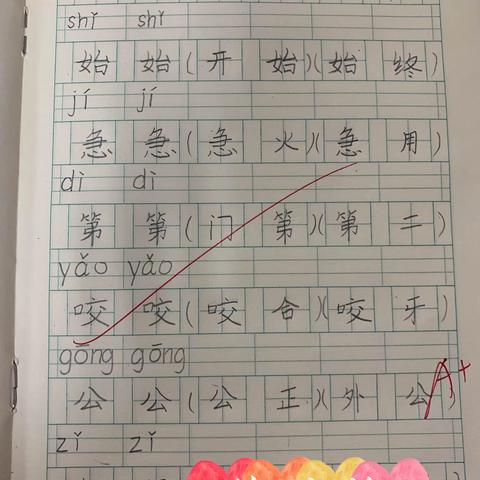 shǐ shǐ
始 始(开 始)(始 终)
jí jí
急 急(急 火)(急 用)
dì dì
第 第(门 第)(第 二)
yǎo yǎo
咬 咬(咬 合)(咬 牙)
gōng gōng
公 公(公 正)(外 公)
A+
zǐ zǐ